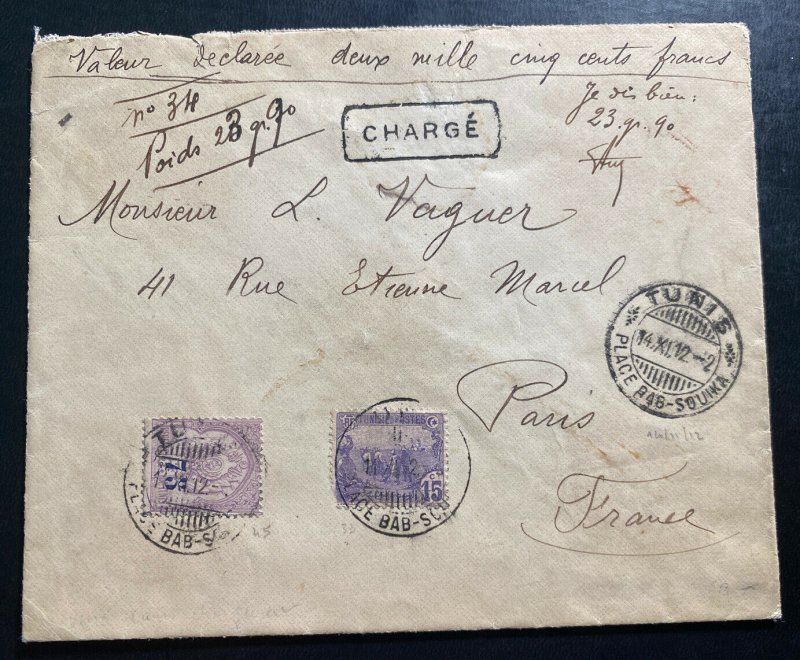 Valeur declarée deux mille cinq cents francs
n° 34
Poids 23 gr. 90
CHARGÉ
Je dis bien:
23. gr. 90
Monsieur L. Vaguer
41 Rue Etienne Marcel
Paris
France
TUNIS
14.XI.12-2
PLACE BAB-SOUIKA
75
PLACE BAB-S
TUNISIE POSTES
15 c
ACE BAB-SOU
45